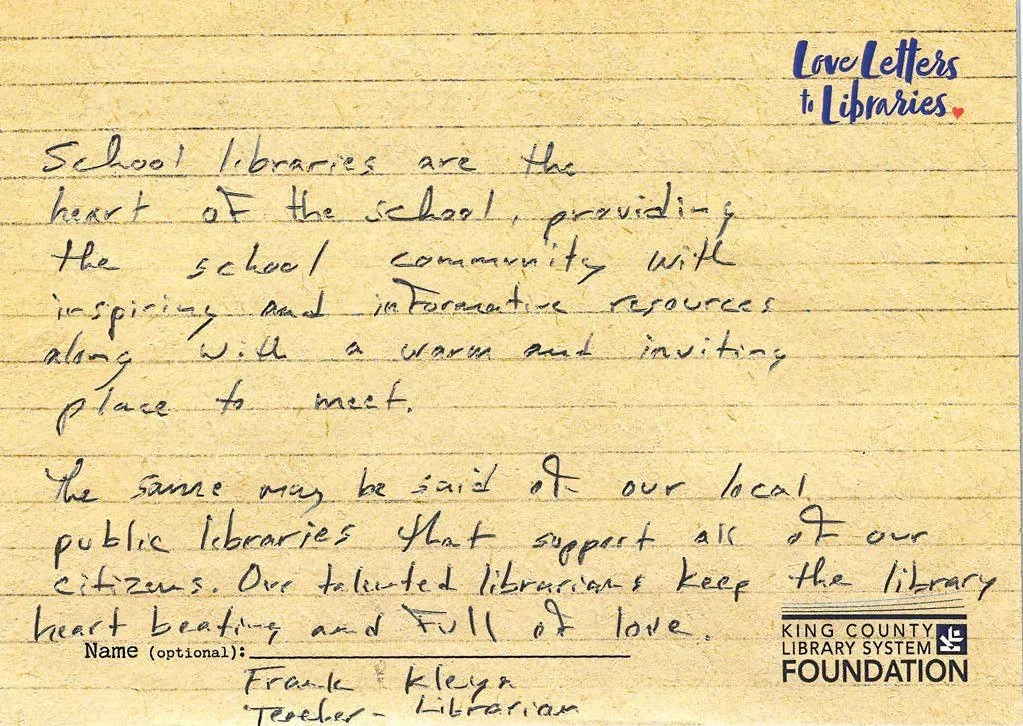 Love Letters
to Libraries
School libraries are the
heart of the school, providing
the school community with
inspiring and informative resources
along with a warm and inviting
place to meet.
The same may be said of our local
public libraries that support all of our
citizens. Our talented librarians keep the library
heart beating and full of love.
Name (optional):
Frank Kleyn
Teacher-Librarian
KING COUNTY
LIBRARY SYSTEM
FOUNDATION